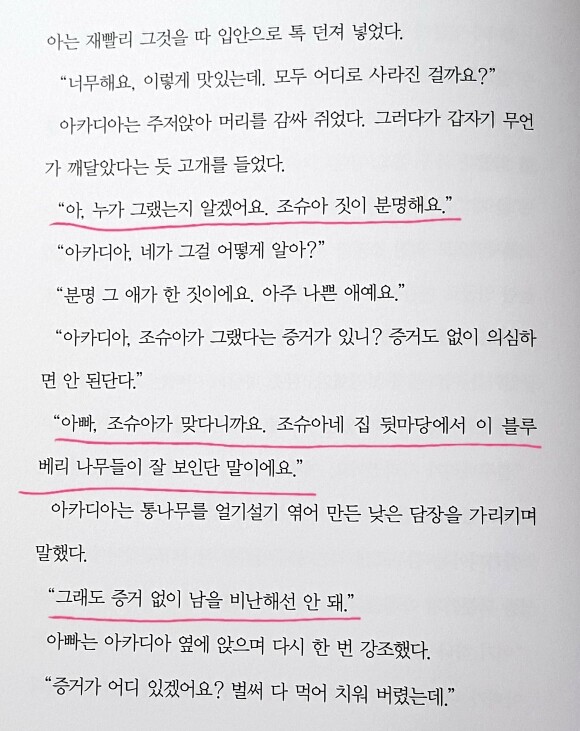 아는 재빨리 그것을 따 입안으로 톡 던져 넣었다.
“너무해요, 이렇게 맛있는데. 모두 어디로 사라진 걸까요?”
아카디아는 주저앉아 머리를 감싸 쥐었다. 그러다가 갑자기 무언
가 깨달았다는 듯 고개를 들었다.
“아, 누가 그랬는지 알겠어요. 조슈아 짓이 분명해요.”
“아카디아, 네가 그걸 어떻게 알아?”
“분명 그 애가 한 짓이에요. 아주 나쁜 애예요.”
“아카디아, 조슈아가 그랬다는 증거가 있니? 증거도 없이 의심하
면 안 된단다.”
“아빠, 조슈아가 맞다니까요. 조슈아네 집 뒷마당에서 이 블루
베리 나무들이 잘 보인단 말이에요.”
아카디아는 통나무를 얼기설기 엮어 만든 낮은 담장을 가리키며
말했다.
“그래도 증거 없이 남을 비난해선 안 돼.”
아빠는 아카디아 옆에 앉으며 다시 한 번 강조했다.
“증거가 어디 있겠어요? 벌써 다 먹어 치워 버렸는데.”